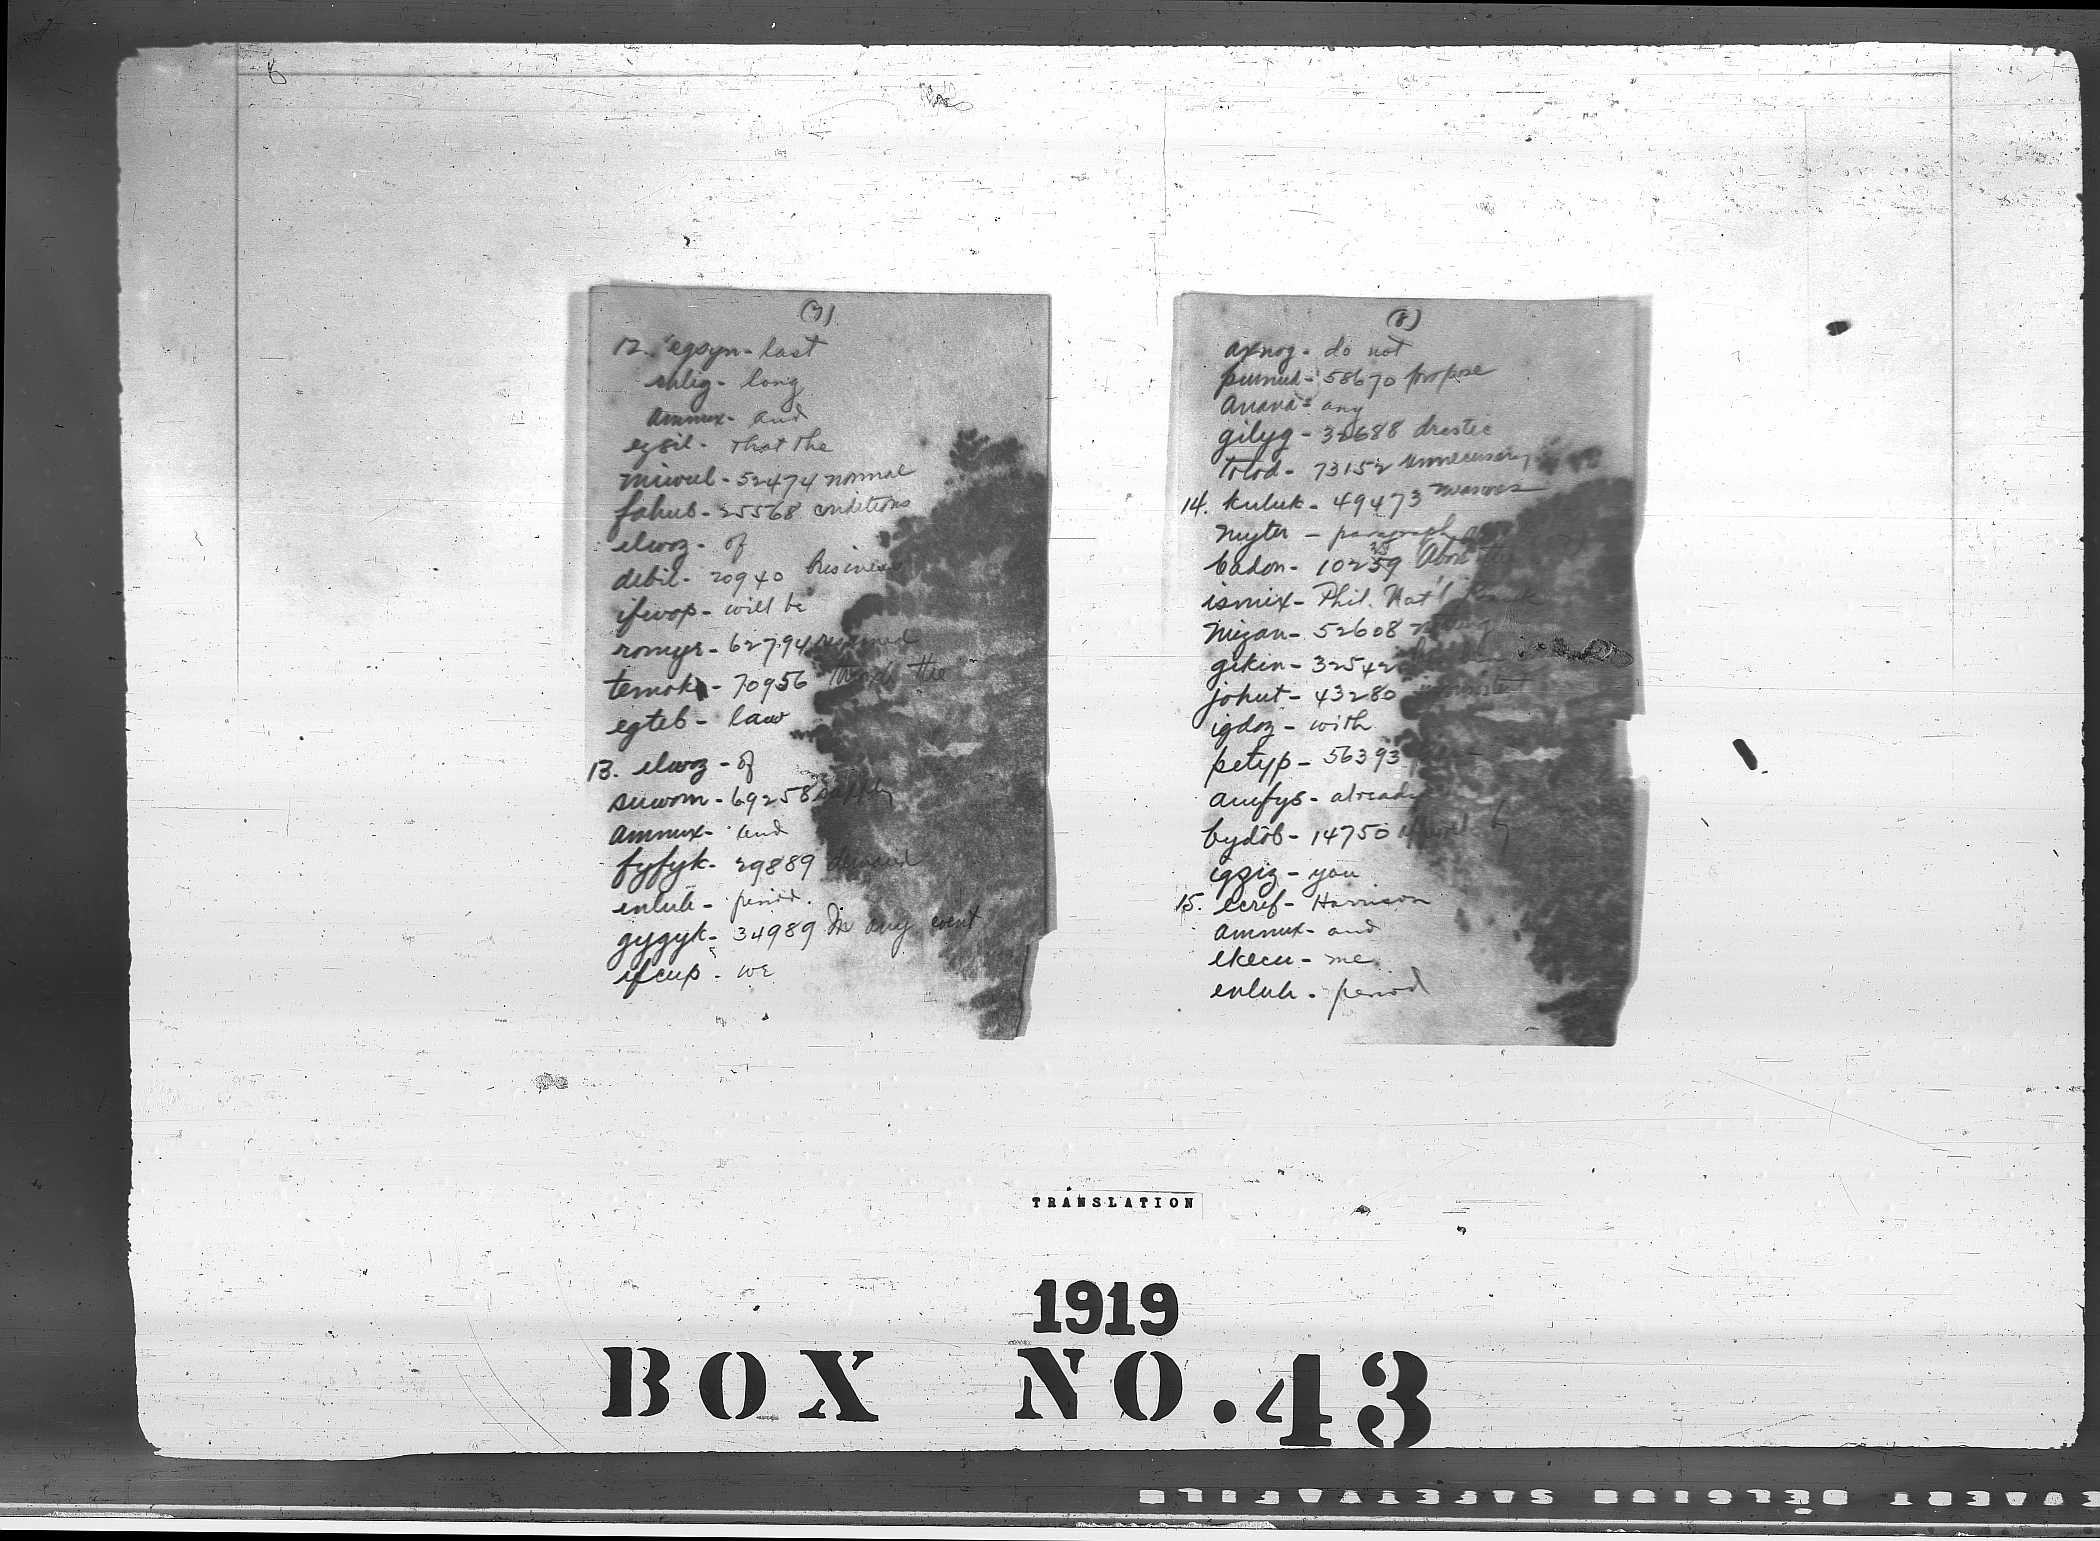 (7)
12. egsyn - last
enlig - long
ammux - and
egsil - that the
miwul - 52474 normal
fahub - 25568 conditions
elwoz - of
debil - 20940 Business
ifwop - will be
romyr - 62794 resumed
temok - 70956 the
egteb - law
13. elwoz - of
suwom - 69258 supply
ammux - and
fyfyk - 29889 demand
enlub - period.
gygyk - 34989 In any event
ifcup - we
(8)
axnog - do not
pumud - 58670 propose
anava - any
gilyg - 32688 drastic
tolod - 73152 unnecessary
14. kuluk - 49473 measures
myter - paragraph
badon - 10259
ismix - Phil. Nat'l Bank
mizan - 52608
gikin - 32542
johut - 43280 inconsistent
igdoz - with
petyp - 56393
amfys - already
bydob - 14750 by
igziz - you
15. ecref - Harrison
ammux - and
ekecu - me
enlub - period
TRANSLATION
1919
BOX NO.43